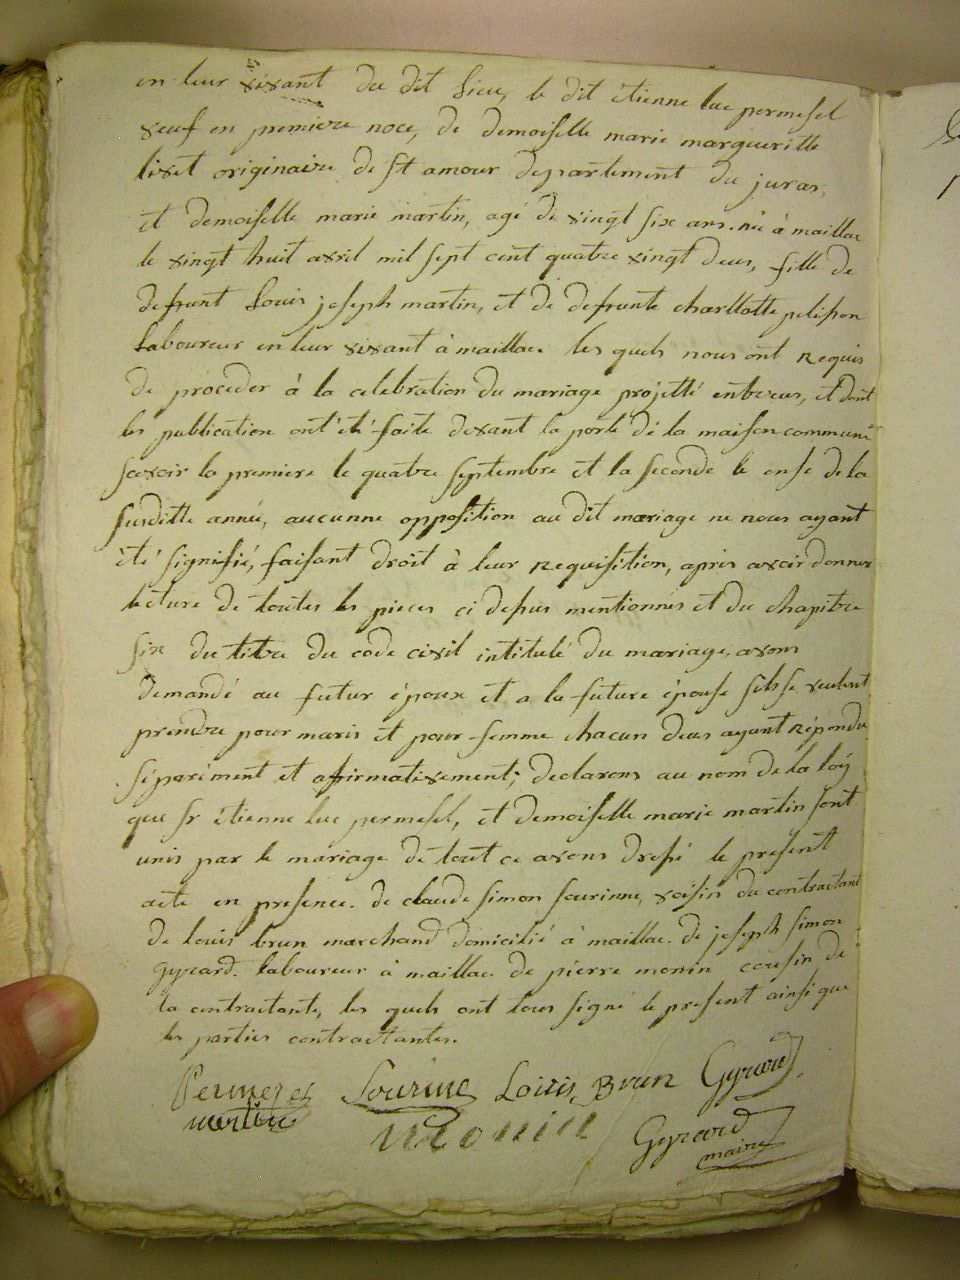 en leur vivant du dit lieu, le dit etienne luc permesel
veuf en premiere noce, de demoiselle marie margueritte
livet originaire de st amour departement du juras,
et demoiselle marie martin, agé de vingt six ans. né à maillac
le vingt huit avril mil sept cent quatre vingt deus, fille de
defunt Louis joseph martin, et de defunte charllotte pelison
Laboureur en leur vivant à maillac les quels nous ont Requis
de proceder à la celebration du mariage projetté entreus, et dont
les publication ont été faite devant la porte de la maison commune
scavoir la premiere le quatre septembre et la seconde le onse de la
susditte année, aucunne opposition au dit mariage ne nous ayant
été signifié, faisant droit à leur Requisition, apris avoir donner
lecture de toutes les pieces ci depus mentionnés et du chapitre
six du titre du code civil intitulé du mariage, avons
demandé au futur époux et a la future épouse sils se veulent
prendre pour maris et pour femme chacun deus ayant Répondu
sépariment et afirmativement; declarons au nom de la loy
que sr étienne luc permesel, et demoiselle marie martin sont
unis par le mariage de tout ce avons dressé le present
acte en presence. de claude simon sourinne, voisin du contractant
de louis brun marchand domicilié à maillac. de joseph simon
gyrard. laboureur à maillac de pierre monin cousin de
la contractante, les quels ont tous signé le present ainsi que
les parties contractantes.
Permezel Sourine Louis Brun Gyrard
martin monin Gyrard
maire